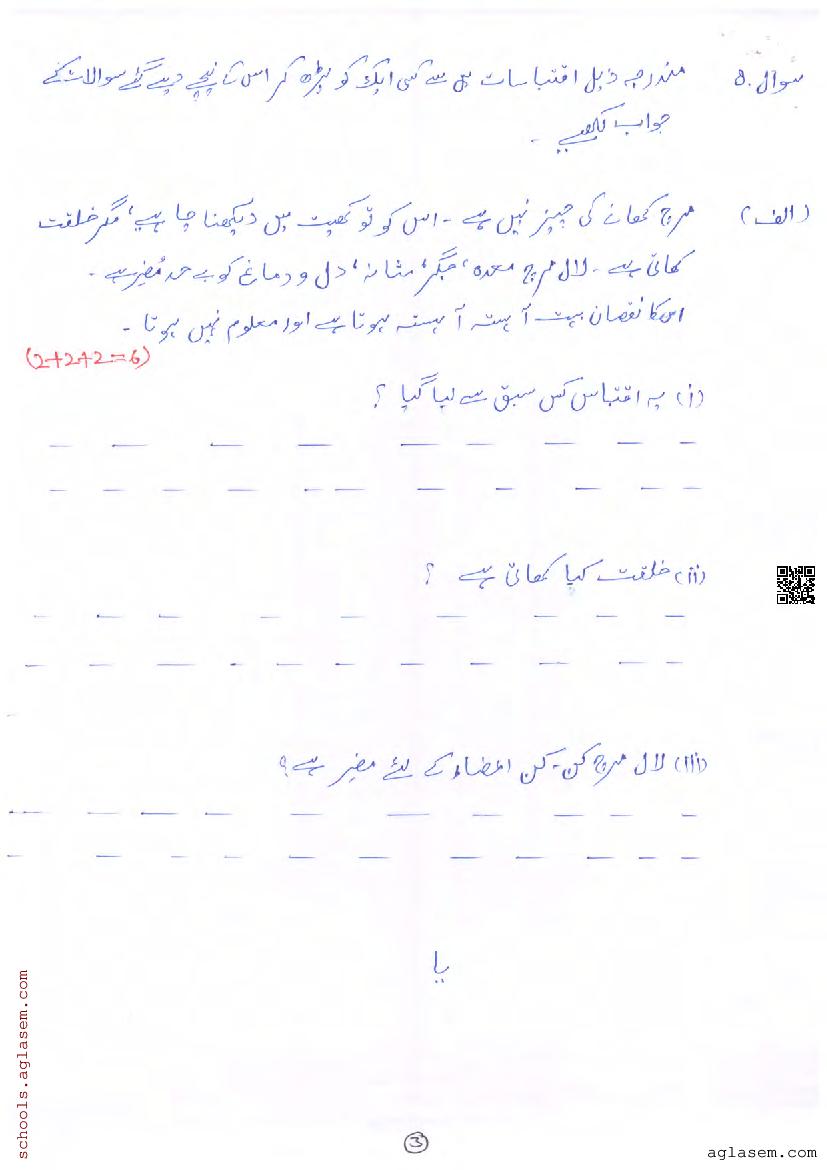 سوال ۵۔ مندرجہ ذیل اقتباسات میں سے کسی ایک کو پڑھ کر اس کے نیچے دیے گئے سوالات کے
جواب لکھیے۔
(الف) مرچ کھانے کی چیز نہیں ہے۔ اس کو تو کھیت میں دیکھنا چاہیے، مگر خلقت
کھاتی ہے۔ لال مرچ معدہ، جگر، مثانہ، دل و دماغ کو بے حد مُضر ہے۔
اس کا نقصان بہت آہستہ آہستہ ہوتا ہے اور معلوم نہیں ہوتا۔
(2+2+2=6)
(i) یہ اقتباس کس سبق سے لیا گیا؟
(ii) خلقت کیا کھاتی ہے؟
(iii) لال مرچ کن۔کن اعضاء کے لئے مضر ہے؟
یا
3
schools.aglasem.com
aglasem.com